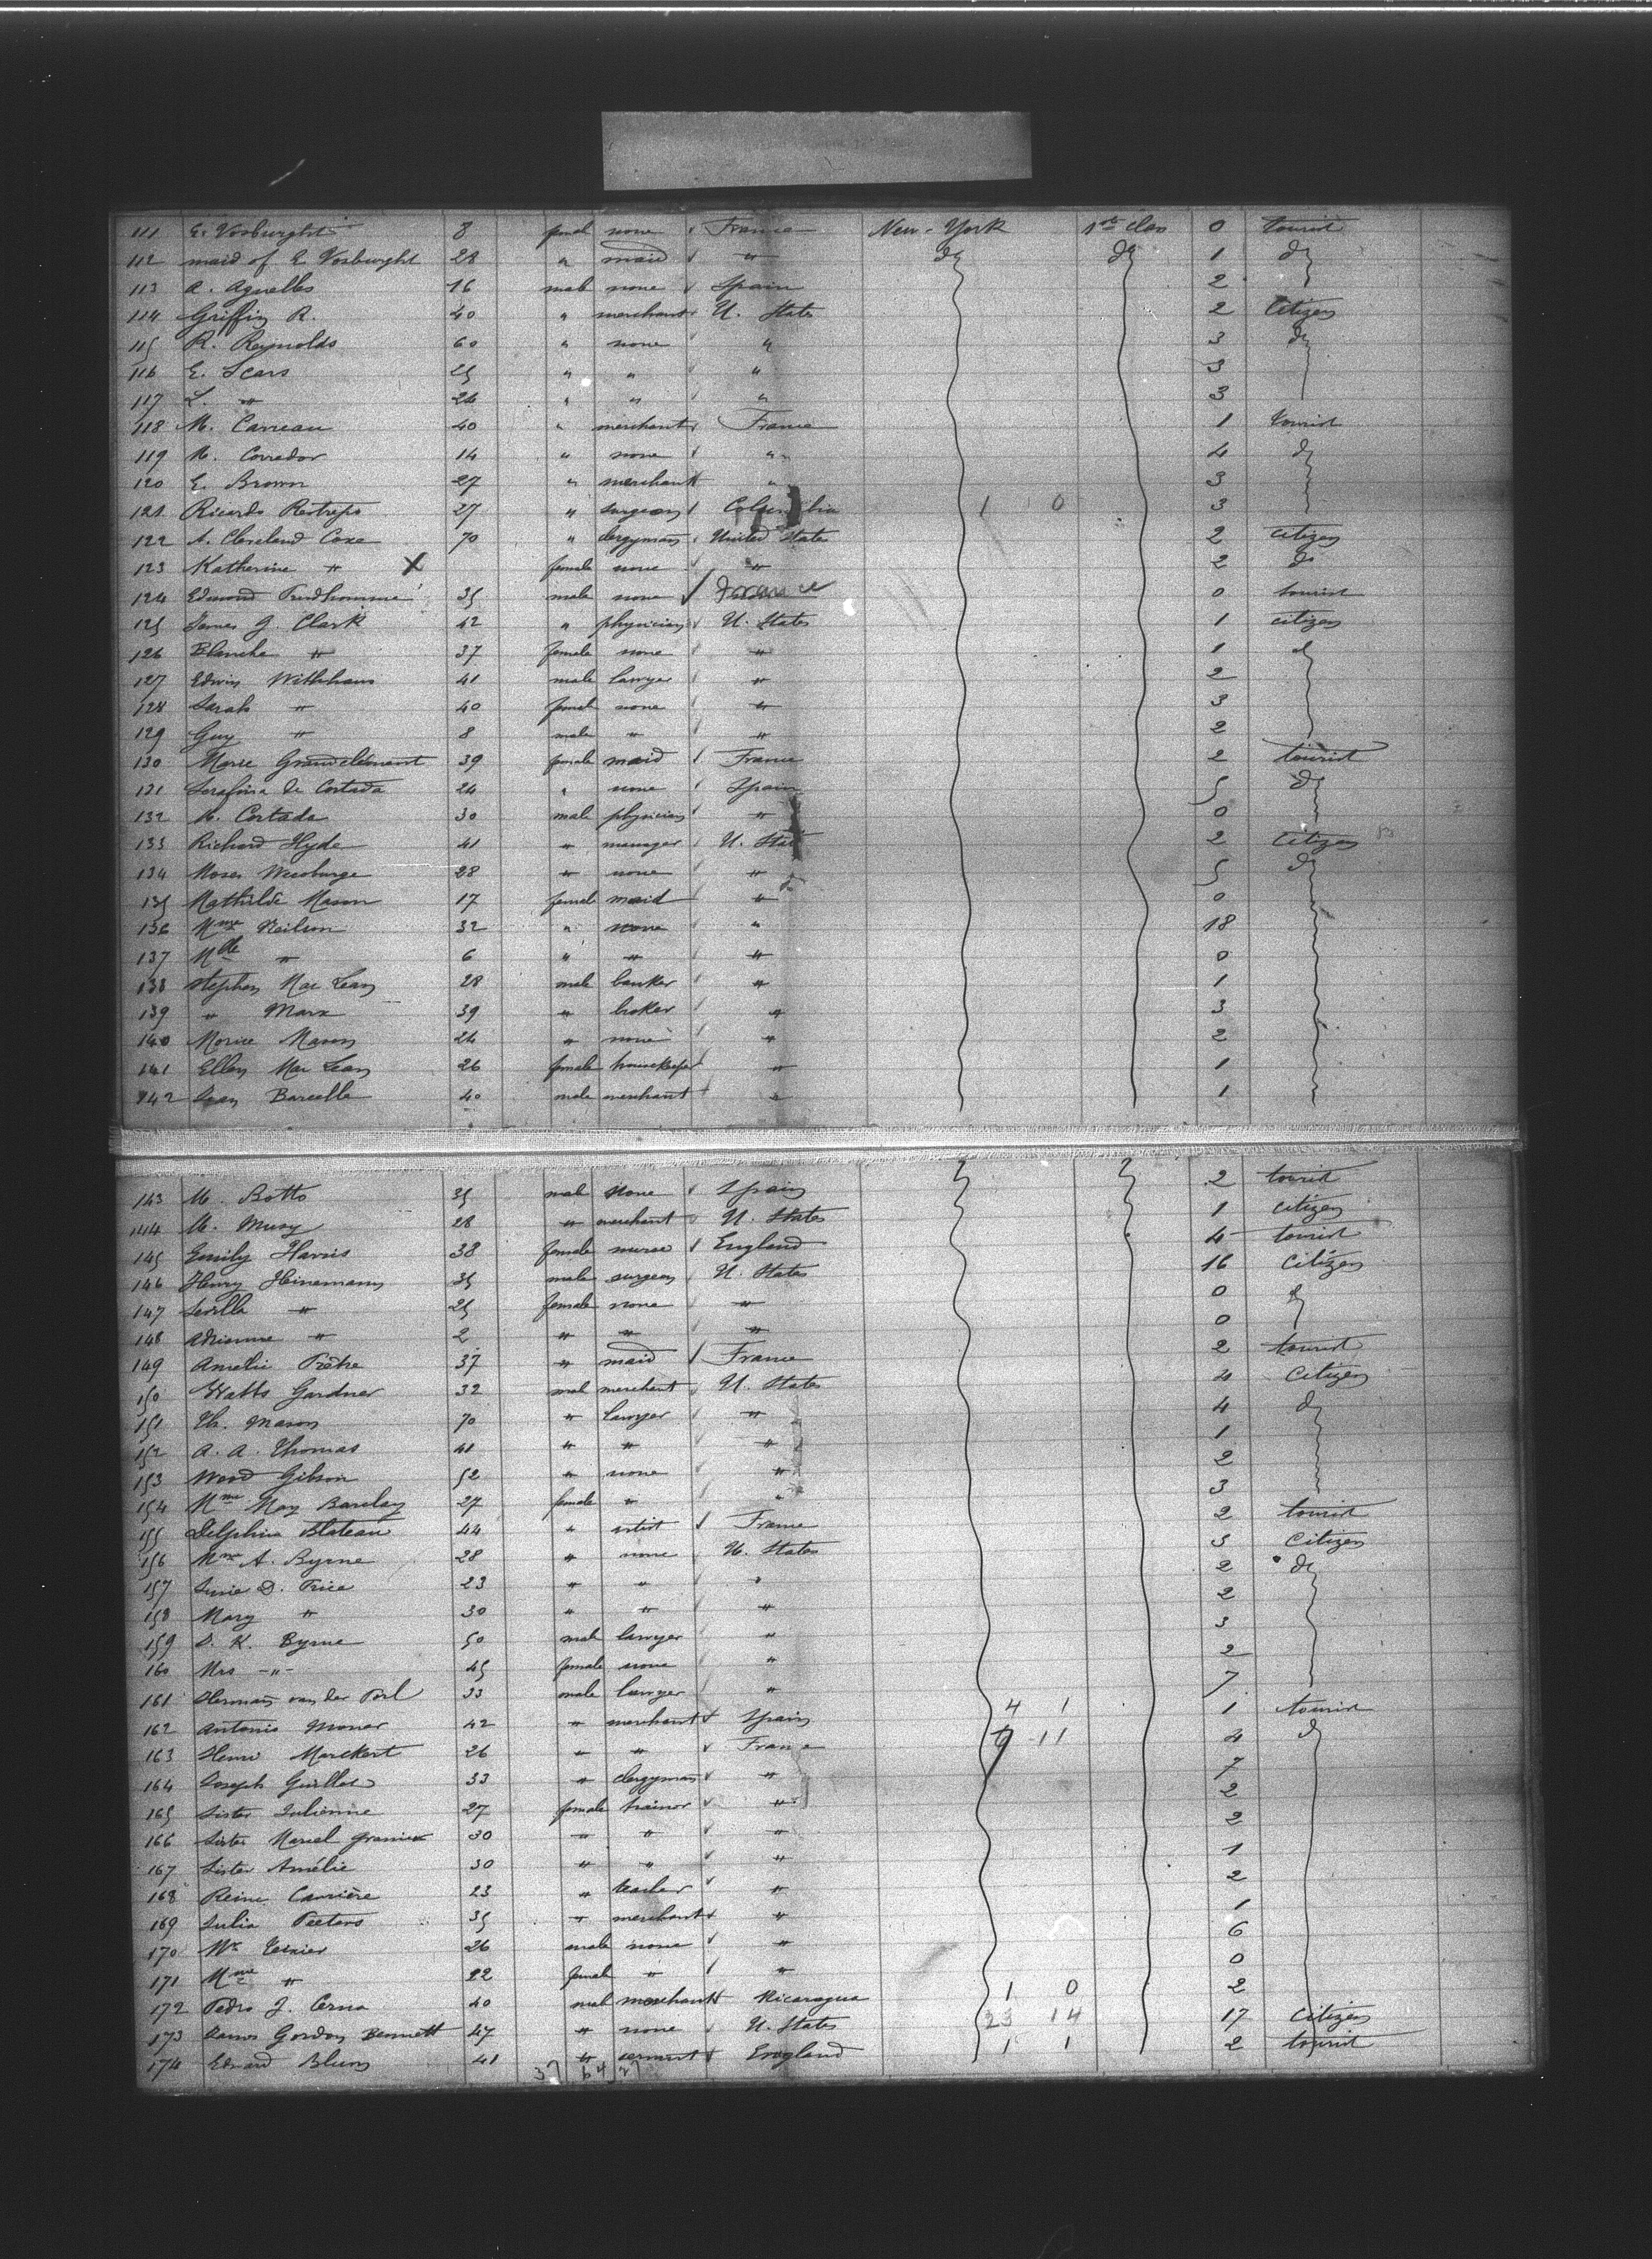 111 E. Vosburght 8 femal none France New-York 1st Class 0 tourist
112 maid of E Vosburght 28 " maid " do do 1 do
113 A. Aguelles 16 male none Spain 2
114 Griffin R. 40 " merchant U. States 2 Citizen
115 R. Reynolds 60 " none " 3 do
116 E. Scars 25 " " " 3
117 L. " 24 " " " 3
118 M. Carreau 40 " merchant France 1 tourist
119 M. Corredor 14 " none " 4 do
120 E. Brown 27 " merchant " 3
121 Ricardo Restrepo 27 " surgeon Columbia 1 0 3
122 A. Cleveland Coxe 70 " clergyman United States 2 citizen
123 Katherine " X female none " 2 do
124 Edmond Prudhomme 35 male none France 0 tourist
125 James J. Clark 42 " physician U. States 1 citizen
126 Blanche " 37 female none " 1 d
127 Edwin Witthaus 41 male lawyer " 2
128 Sarah " 40 femal none " 3
129 Guy " 8 male " " 2
130 Marie Grandclément 39 female maid France 2 tourist
131 Serafina de Cortada 24 " none Spain 5 do
132 M. Cortada 30 male physician " 0
133 Richard Hyde 41 " manager U. Stat 2 Citizen
134 Moses 28 " none " 5 do
135 Mathilde Mason 17 female maid " 0
136 Mme Neilson 32 " none " 18
137 Mlle " 6 " " " 0
138 Stephen Mac Lean 28 male banker " 1
139 " Marx 39 " broker " 3
140 Morice Mason 24 " none " 2
141 Ellen Mac Lean 26 female housekeeper " 1
142 Jean Barcelle 40 male merchant " 1
143 M. Botto 35 male none Spain 2 tourist
144 M. Musy 28 " merchant U. States 1 citizen
145 Emily Harris 38 female nurse England 4 tourist
146 Henry Heinemann 35 male surgeon U. States 16 Citizen
147 Sevilla " 25 female none " 0 d
148 Adrienne " 2 " " " 0
149 Amelie Prêtre 37 " maid France 2 tourist
150 Watts Gardner 32 mal merchant U. States 4 Citizen
151 Th. Mason 70 " lawyer " 4 do
152 A. A. Thomas 41 " " " 1
153 Wood Gibson 52 " none " 2
154 Mme May Barclay 27 female " " 3
155 Delphine Blateau 44 " artist France 2 tourist
156 Mme A. Byrne 28 " none U. States 3 Citizen
157 Susie D. Price 23 " " " 2 do
158 Mary " 30 " " " 2
159 D. K. Byrne 50 male lawyer " 3
160 Mrs -"- 45 female none " 2
161 Herman van der Poel 33 male lawyer " 4 1 7
162 Antonio Moner 42 " merchant Spain 1 tourist
163 Henri Marckert 26 " " France 9 11 4 do
164 Joseph Guillot 33 " clergyman " 7
165 Sister Julienne 27 female trainor " 2
166 Sister Marcel Granier 30 " " " 2
167 Sister Amélie 30 " " " 1
168 Reine Carrière 23 " teacher " 2
169 Julia Peeters 35 " merchant " 1
170 Mr Teixier 26 male none " 6
171 Mme " 22 female " " 0
172 Pedro J. Cerna 40 male merchant Nicaragua 1 0 2
173 James Gordon Bennett 47 " none U. States 23 14 17 Citizen
174 Edward Blum 41 " servant England 1 1 2 tourist
37 64 27